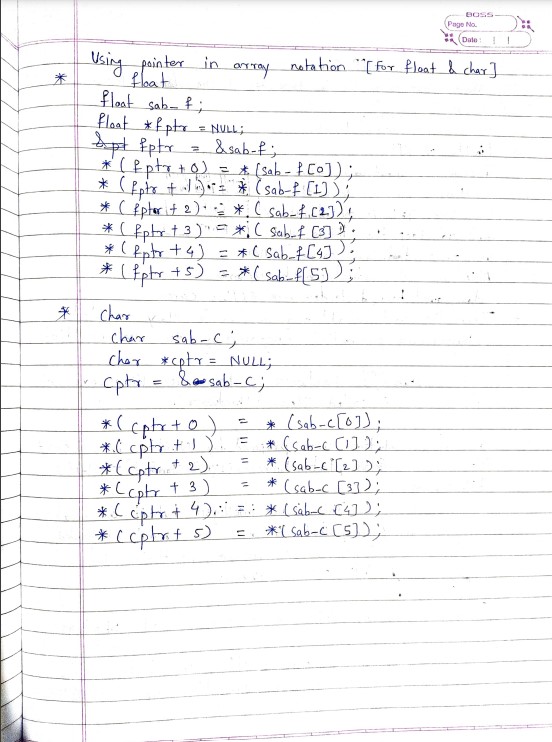 BOSS
Page No.
Date: | |
Using pointer in array notation "[For float & char]
* float
float sab_f;
float *fptr = NULL;
fptr = &sab_f;
*(fptr + 0) = *(sab_f[0]);
*(fptr + 1) = *(sab_f[1]);
*(fptr + 2) = *(sab_f[2]);
*(fptr + 3) = *(sab_f[3]);
*(fptr + 4) = *(sab_f[4]);
*(fptr + 5) = *(sab_f[5]);
* Char
Char sab_c;
Char *cptr = NULL;
Cptr = & sab_c;
*(cptr + 0) = *(sab_c[0]);
*(cptr + 1) = *(sab_c[1]);
*(cptr + 2) = *(sab_c[2]);
*(cptr + 3) = *(sab_c[3]);
*(cptr + 4) = *(sab_c[4]);
*(cptr + 5) = *(sab_c[5]);